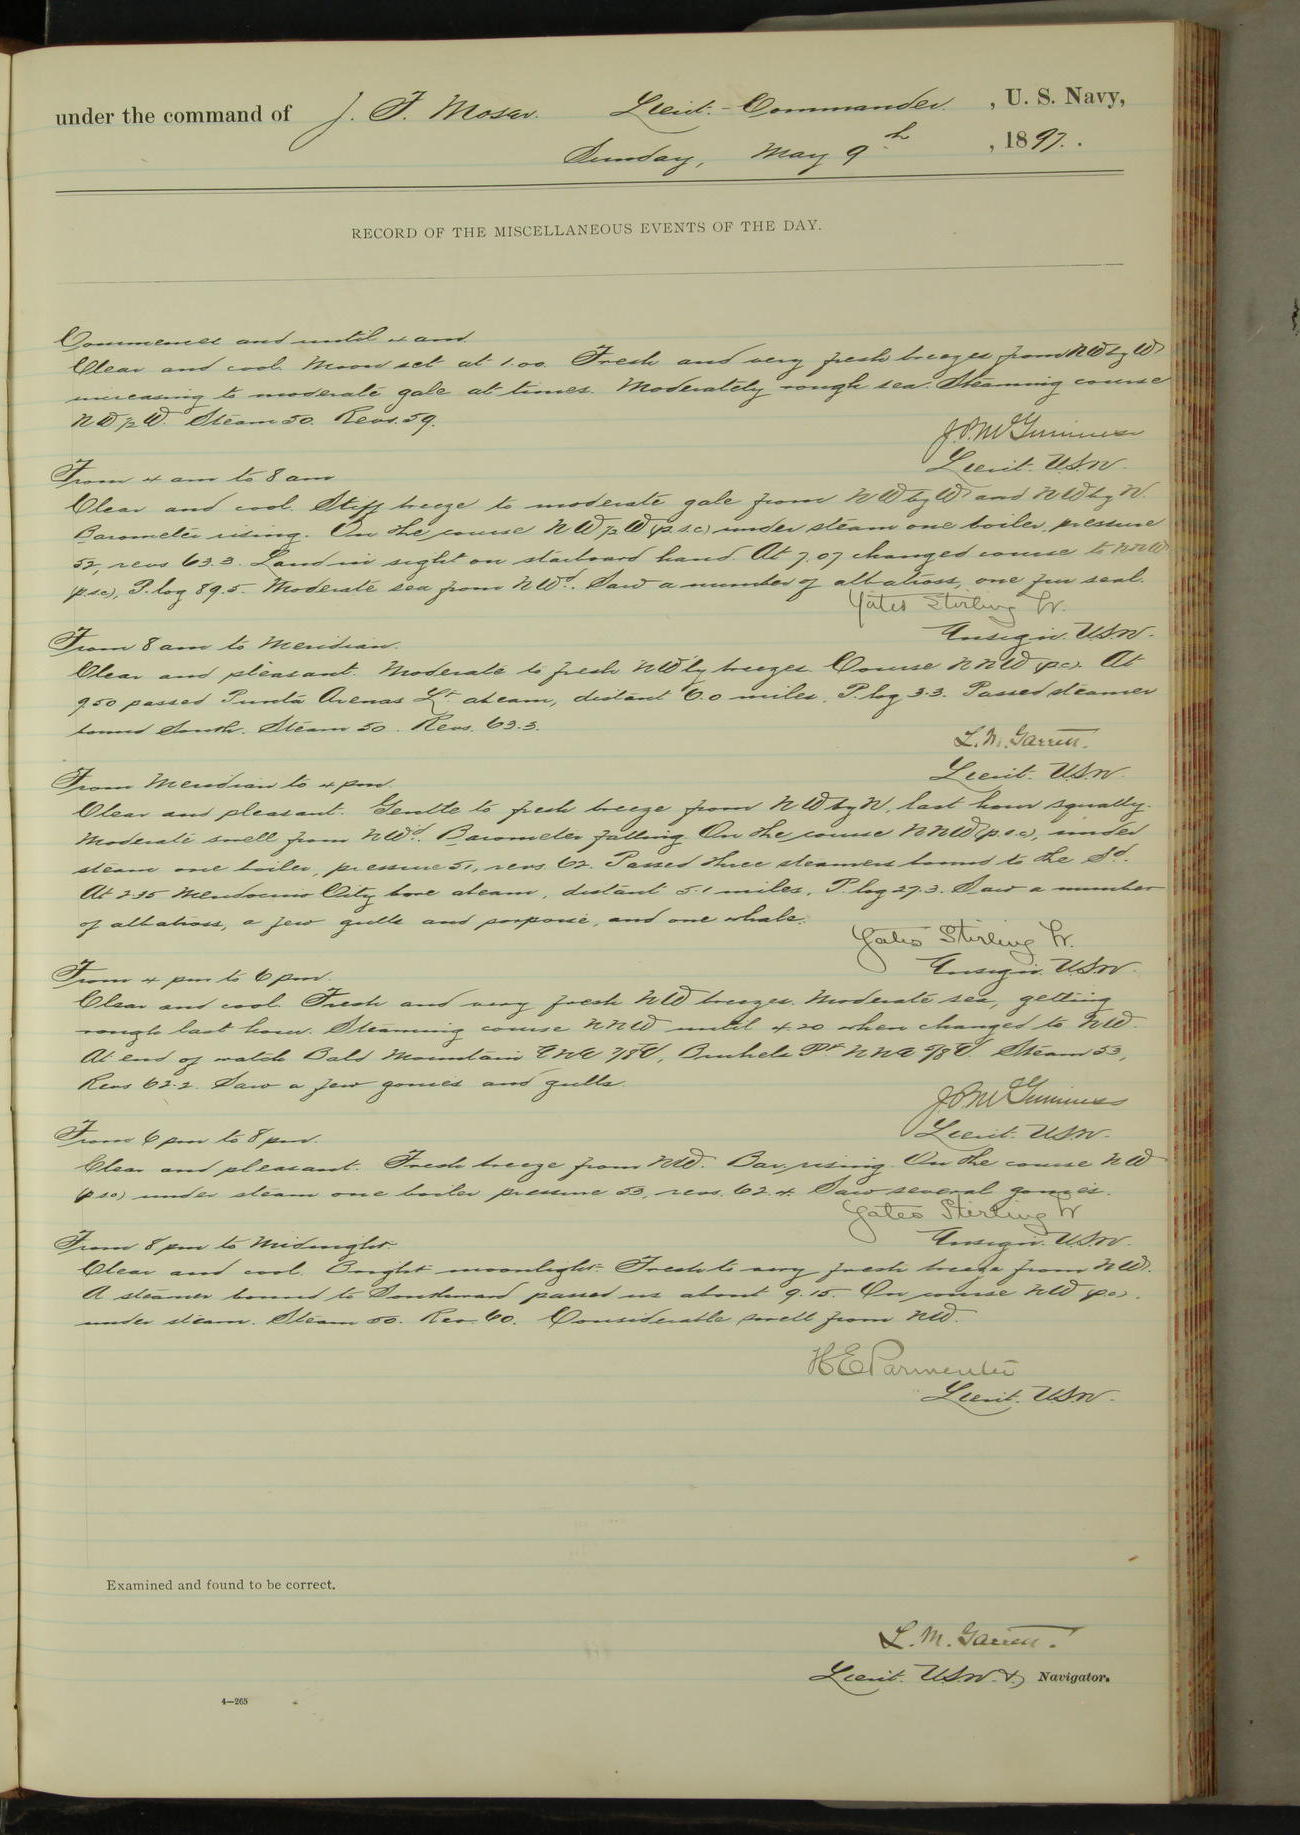 under the command of J. F. Moser. Lieut.-Commander. , U. S. Navy,
Sunday, May 9th , 1897.
RECORD OF THE MISCELLANEOUS EVENTS OF THE DAY.
Commences and until 4 am.
Clear and cool. Moon set at 1.00. Fresh and very fresh breezes from NW by W
increasing to moderate gale at times. Moderately rough sea. Steaming course
NW ½ W. Steam 50. Revs. 59.
Lieut. U.S.N.
From 4 am to 8 am
Clear and cool. Stiff breeze to moderate gale from NW by W and NW by N.
Barometer rising. On the course NW ½ W (p.s.c.) under steam one boiler, pressure
52, revs 63.3. Land in sight on starboard hand. At 7.07 changed course to NNW
(p.s.c.), P. log 89.5. Moderate sea from NWd. Saw a number of albatross, one fur seal.
Yates Stirling Jr.
Ensign. U.S.N.
From 8 am to Meridian.
Clear and pleasant. Moderate to fresh NW'ly breezes. Course NNW (p.c.). At
9.50 passed Punta Arenas Lt. abeam, distant 6.0 miles. P. log 33. Passed steamer
bound South. Steam 50. Revs. 63.3.
L. M. Garrett.
Lieut. U.S.N.
From Meridian to 4 pm.
Clear and pleasant. Gentle to fresh breeze from NW by N, last hour squally.
Moderate swell from NWd. Barometer falling. On the course NNW (p.s.c), under
steam one boiler, pressure 51, revs. 62. Passed three steamers bound to the Sd.
At 2.35 Mendocino City bore abeam, distant 5.1 miles, P. log 27.3. Saw a number
of albatross, a few gulls and porpoise, and one whale.
Yates Stirling Jr.
Ensign. U.S.N.
From 4 pm to 6 pm.
Clear and cool. Fresh and very fresh NW breezes. Moderate sea, getting
rough last hour. Steaming course NNW until 4.20 when changed to NW.
At end of watch Bald Mountain ENE 7/8 E, Pt. NNE Steam 53,
Revs 62.2. Saw a few gonies and gulls.
Lieut. U.S.N.
From 6 pm to 8 pm.
Clear and pleasant. Fresh breeze from NW. Bar, rising. On the course NW
(p.s.c) under steam one boiler pressure 53, revs. 62.4. Saw several gonies.
Yates Stirling Jr
Ensign. U.S.N.
From 8 pm to Midnight.
Clear and cool. Bright moonlight. Fresh to very fresh breeze from NW.
A steamer bound to Southward passed us about 9.15. On course NW (p.c).
under steam. Steam 50. Rev. 60. Considerable swell from NW.
H E Parmenter
Lieut. U.S.N.
Examined and found to be correct.
L. M. Garrett.
Lieut. U.S.N. &, Navigator.
4—265